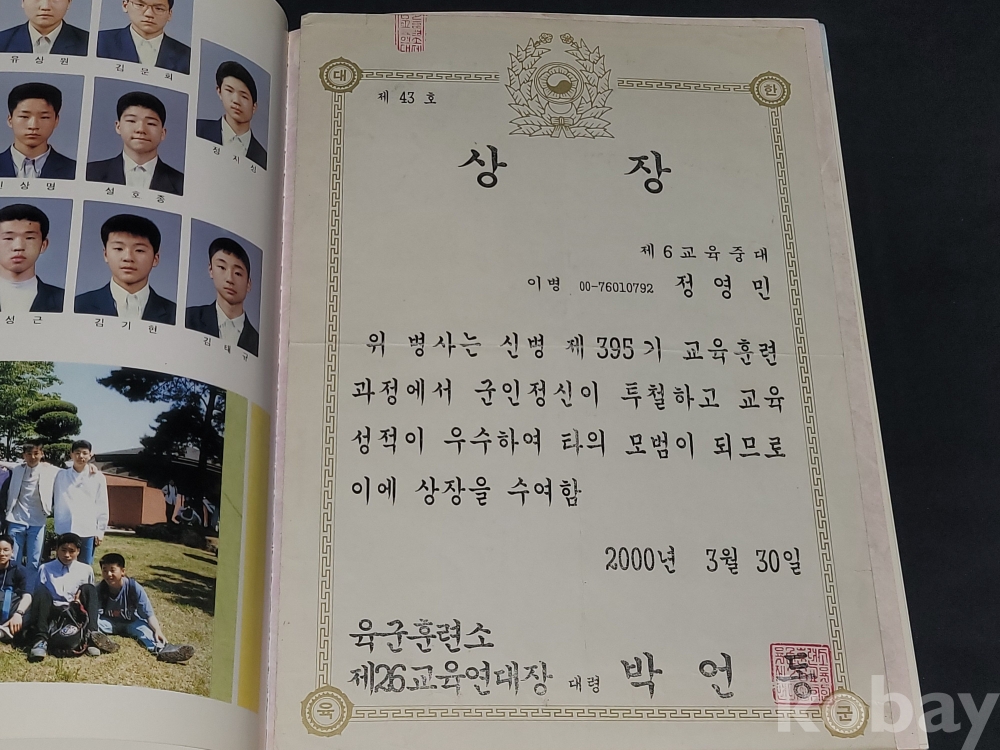 유상원
김문희
정지성
상명
설호종
성근
김기현
김태규
대
한
제 43 호
상 장
제6교육중대
이병 00-76010792 정영민
위 병사는 신병 제395기 교육훈련
과정에서 군인정신이 투철하고 교육
성적이 우수하여 타의 모범이 되므로
이에 상장을 수여함
2000년 3월 30일
육군훈련소
제26교육연대장 대령 박 언 동
육
군
kobay